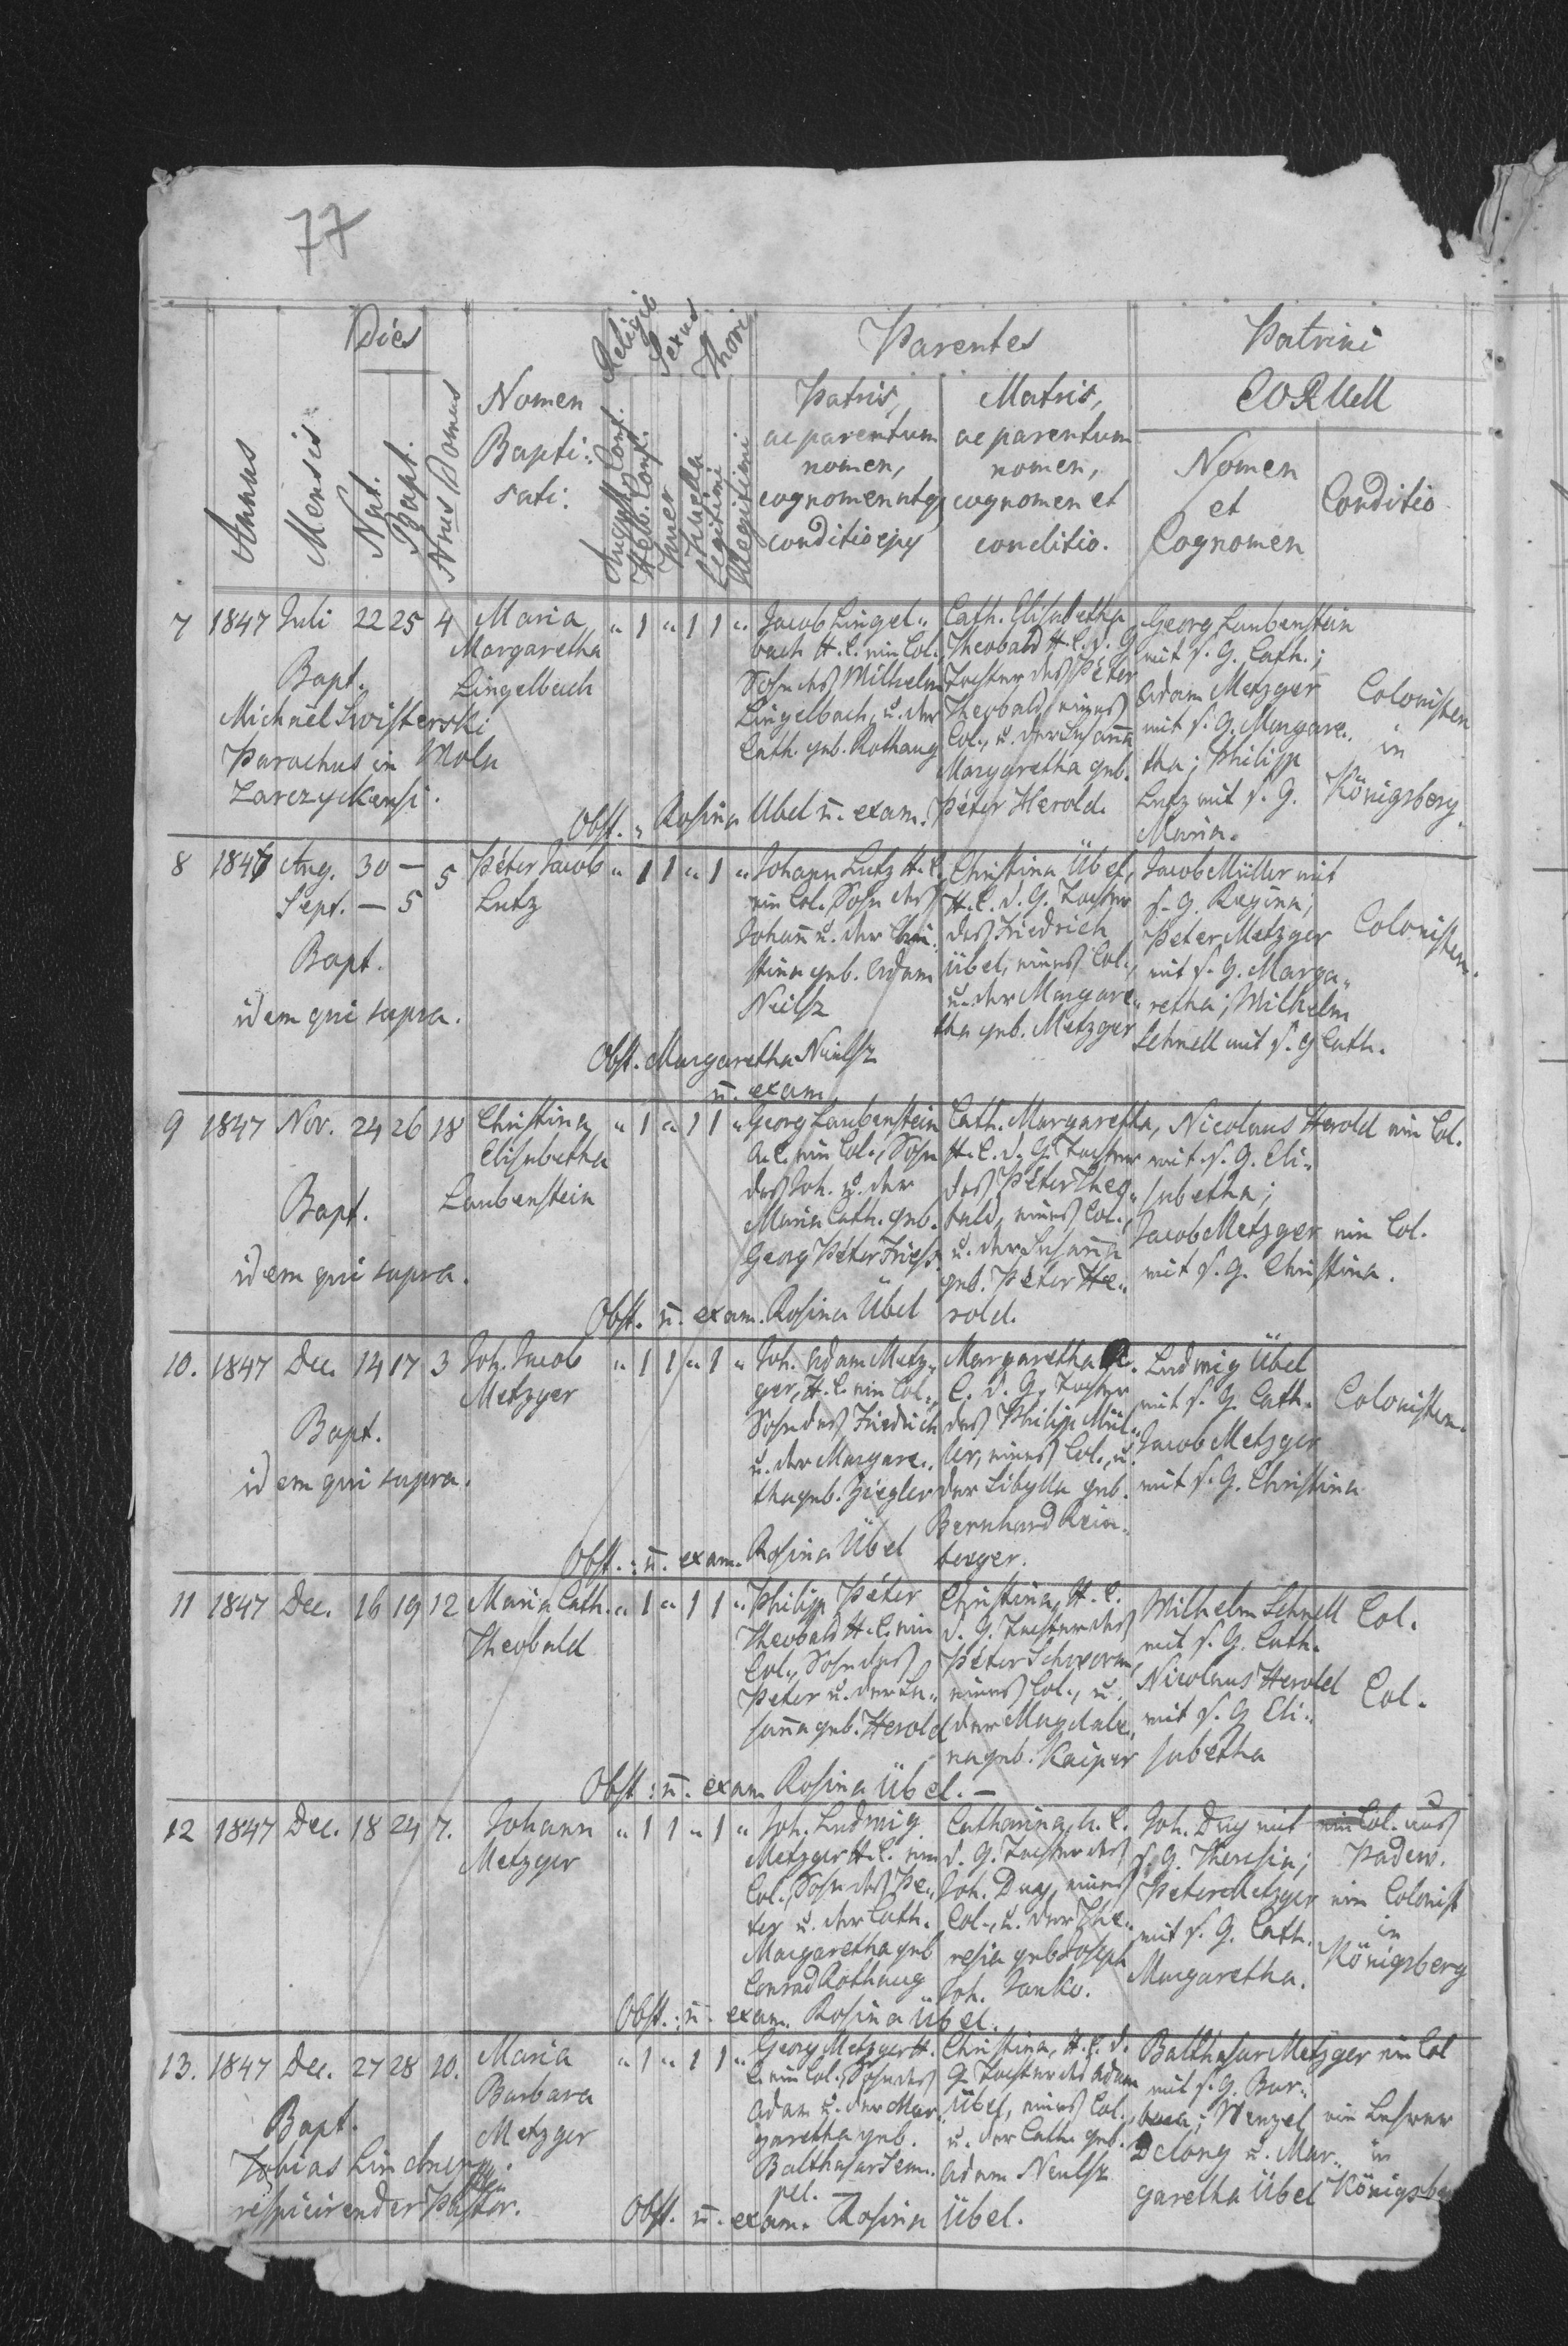 77
Dies
Religio
Sexus
Thori
Parentes
Patrini
Annus
Mensis
Nat.
Bapt.
Nrus Domus
Nomen
Bapti:
sati:
Augst. Conf.
Helv. Conf.
Puer
Puella
Legitimi
Illegitimi
Patris,
ac parentum
nomen,
cognomen utq
conditio ejus
Matris,
ac parentum
nomen,
cognomen et
conditio.
eorum
Nomen
et
Cognomen
Conditio
7 1847 Juli 22 25 4
Maria
Margaretha
Lingelbach
" 1 " 1 1 "
Jacob Lingel"
bach H. C. ein Col.,
Sohn des Wilhelm
Lingelbach, u. der
Cath. geb. Rothaug
Cath. Elisabetha
Theobald H. C. d. G.
Tochter des Péter
Theobald, eines
Col., u. der Susanna
Margaretha geb.
Péter Herold.
Georg Laubenstein
mit s. G. Cath.;
Adam Metzger
mit s. G. Margare"
tha; Philipp
Lutz mit s. G.
Maria.
Colonisten
in
Königsberg.
Bapt.
Michael Swisterski
Parochus in Wola
Zarczyckensi.
Obst. " Rosina Übel u. exam.
8 1847 Aug. 30 — 5
Sept. — 5
Péter Jacob
Lutz
" 1 1 " 1 "
Johann Lutz H. C.
ein Col. Sohn des
Johann u. der Chri"
stina geb. Adam
Neilsz
Christina Übel,
H. C. d. G. Tochter
des Friedrich
Übel, eines Col.,
u. der Margare"
tha geb. Metzger
Jacob Müller mit
s. G. Regina;
Peter Metzger
mit s. G. Marga"
retha; Wilhelm
Schnell mit s. G Cath.
Colonisten.
Bapt.
idem qui supra.
Obst. Margaretha Neilsz
u. exam
9 1847 Nov. 24 26 18
Christina
Elisabetha
Laubenstein
" 1 " 1 1 "
Georg Laubenstein
A. C. ein Col., Sohn
des Joh. u. der
Maria Cath. geb.
Georg Péter Friess.
Cath. Margaretha,
H. C. d. G. Tochter
des Péter Theo"
bald, eines Col.,
u. der Susanna
geb. Péter He"
rold.
Nicolaus Herold ein Col.
mit s. G. Eli"
sabetha;
Jacob Metzger ein Col.
mit s. G. Christina.
Bapt.
idem qui supra.
Obst. u. exam. Rosina Übel
10. 1847 Dec. 14 17 3
Joh. Jacob
Metzger
" 1 1 " 1 "
Joh. Adam Metz"
ger, H. C. ein Col.,
Sohn des Friedrich
u. der Margare"
tha geb. Ziegler
Margaretha
C. d. G. Tochter
des Philipp Mül"
ler, eines Col., u.
der Sibylla geb.
Bernhard Rein"
berger.
Ludwig Übel
mit s. G. Cath.
Jacob Metzger
mit s. G. Christina
Colonisten.
Bapt.
idem qui supra.
Obst.: u. exam. Rosina Übel
11 1847 Dec. 16 19 12
Maria Cath.
Theobald
" 1 " 1 1 "
Philipp Péter
Theobald H. C. ein
Col., Sohn des
Peter u. der Su"
sanna geb. Herold
Christina, H. C.
d. G. Tochter des
Péter Schworm,
eines Col., u.
der Magdale"
na geb. Kaiper
Wilhelm Schnell
mit s. G. Cath.
Nicolaus Herold
mit s. G Eli"
sabetha
Col.
Col.
Obst: u. exam Rosina Übel. —
12 1847 Dec. 18 24 7.
Johann
Metzger
" 1 1 " 1 "
Joh. Ludwig
Metzger H. C. ein
Col., Sohn des Pe"
ter u. der Cath.
Margaretha geb
Conrad Rothaug
Catharina, h. C.
d. G. Tochter des
Joh. Duy, eines
Col., u. der The"
resia geb Joseph
Joh. Janko.
Joh. Duy mit
s. G. Theresia;
Peter Metzger
mit s. G. Cath.
Margaretha.
ein Col. aus
Padew.
ein Colonist
in
Königsberg
Obst.: u. exam. Rosina Übel.
13. 1847 Dec. 27 28 10.
Maria
Barbara
Metzger
" 1 " 1 1 "
Georg Metzger H.
C. ein Col., Sohn des
Adam u. der Mar"
garetha geb.
Balthasar Sem"
pel. —
Christina, H. C. d.
G. Tochter des Adam
Übel, eines Col.,
u. der Cath. geb.
Adam Neulsz
Balthasar Metzger ein Col
mit s. G. Bar"
bara; Wenzel
Delong u. Mar"
garetha Übel
ein Lehrer
in
Königsberg
Bapt.
Tobias Lindner
respicirender Pastor.
Obst. u. exam. Rosina Übel.